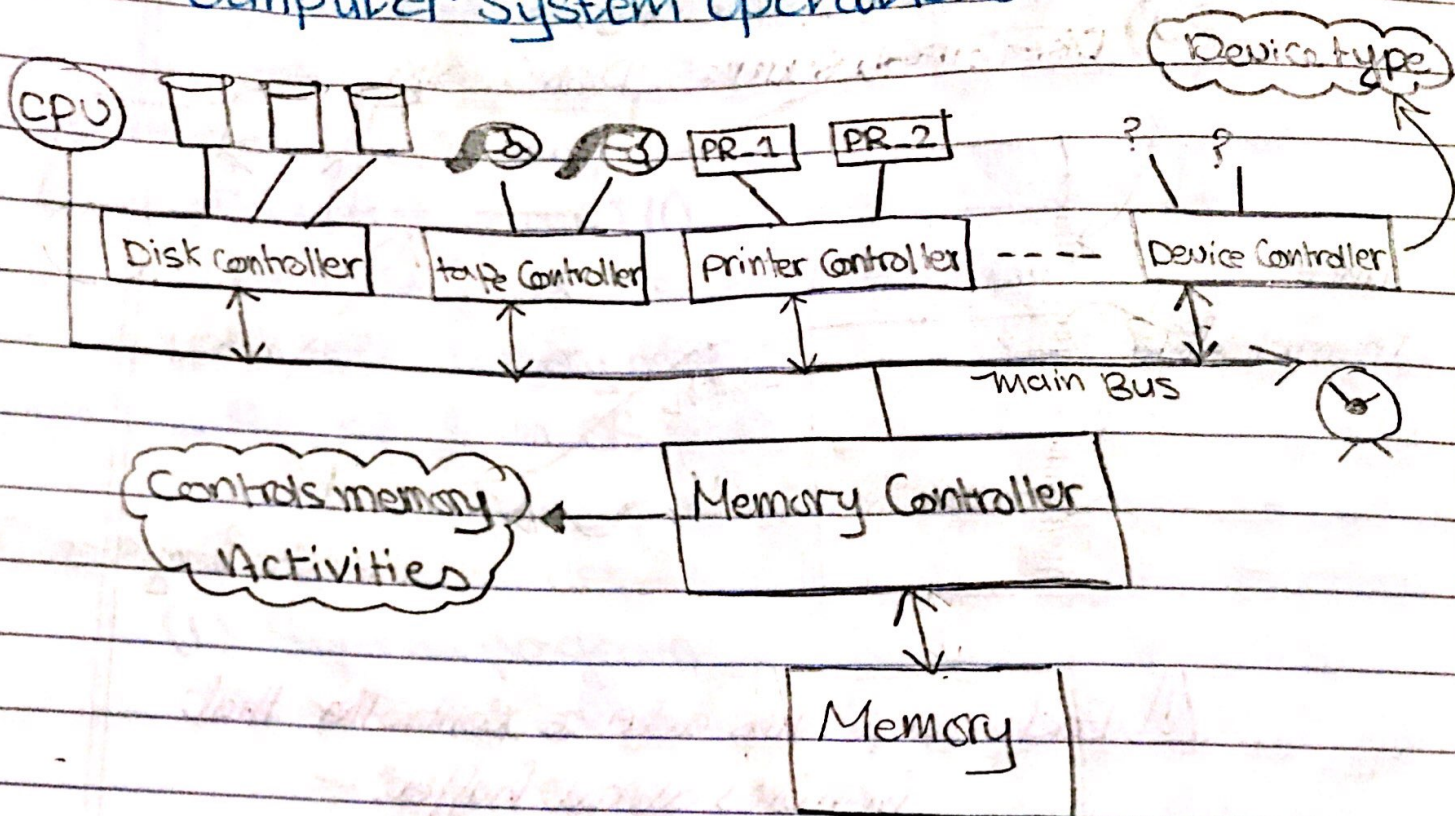 Computer System Operations
Device type
CPU
PR_1
PR_2
?
?
Disk Controller
tape Controller
printer Controller
----
Device Controller
main Bus
Controls memory
Activities
Memory Controller
Memory